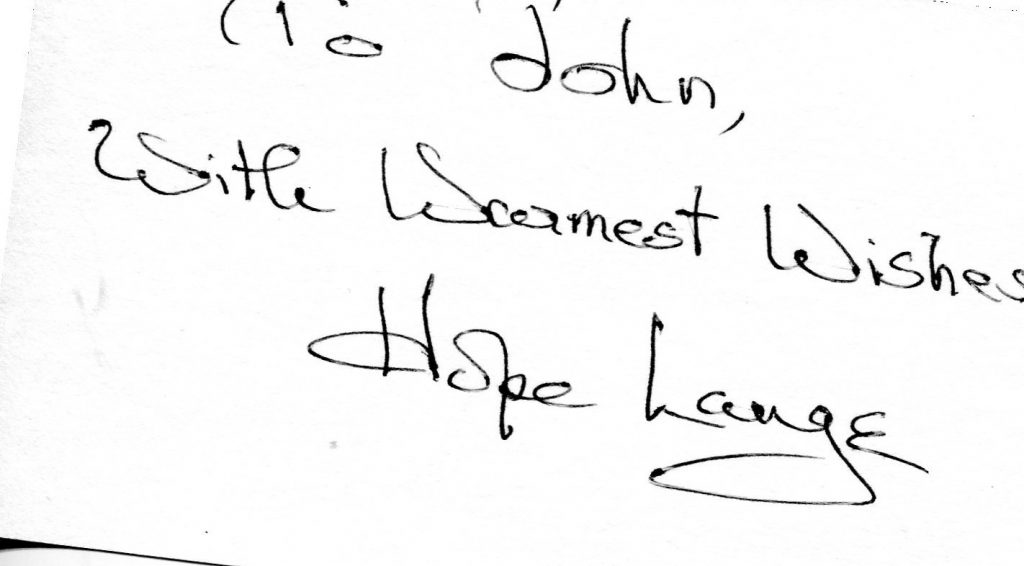 To John,
With Warmest Wishes
Hope Lange